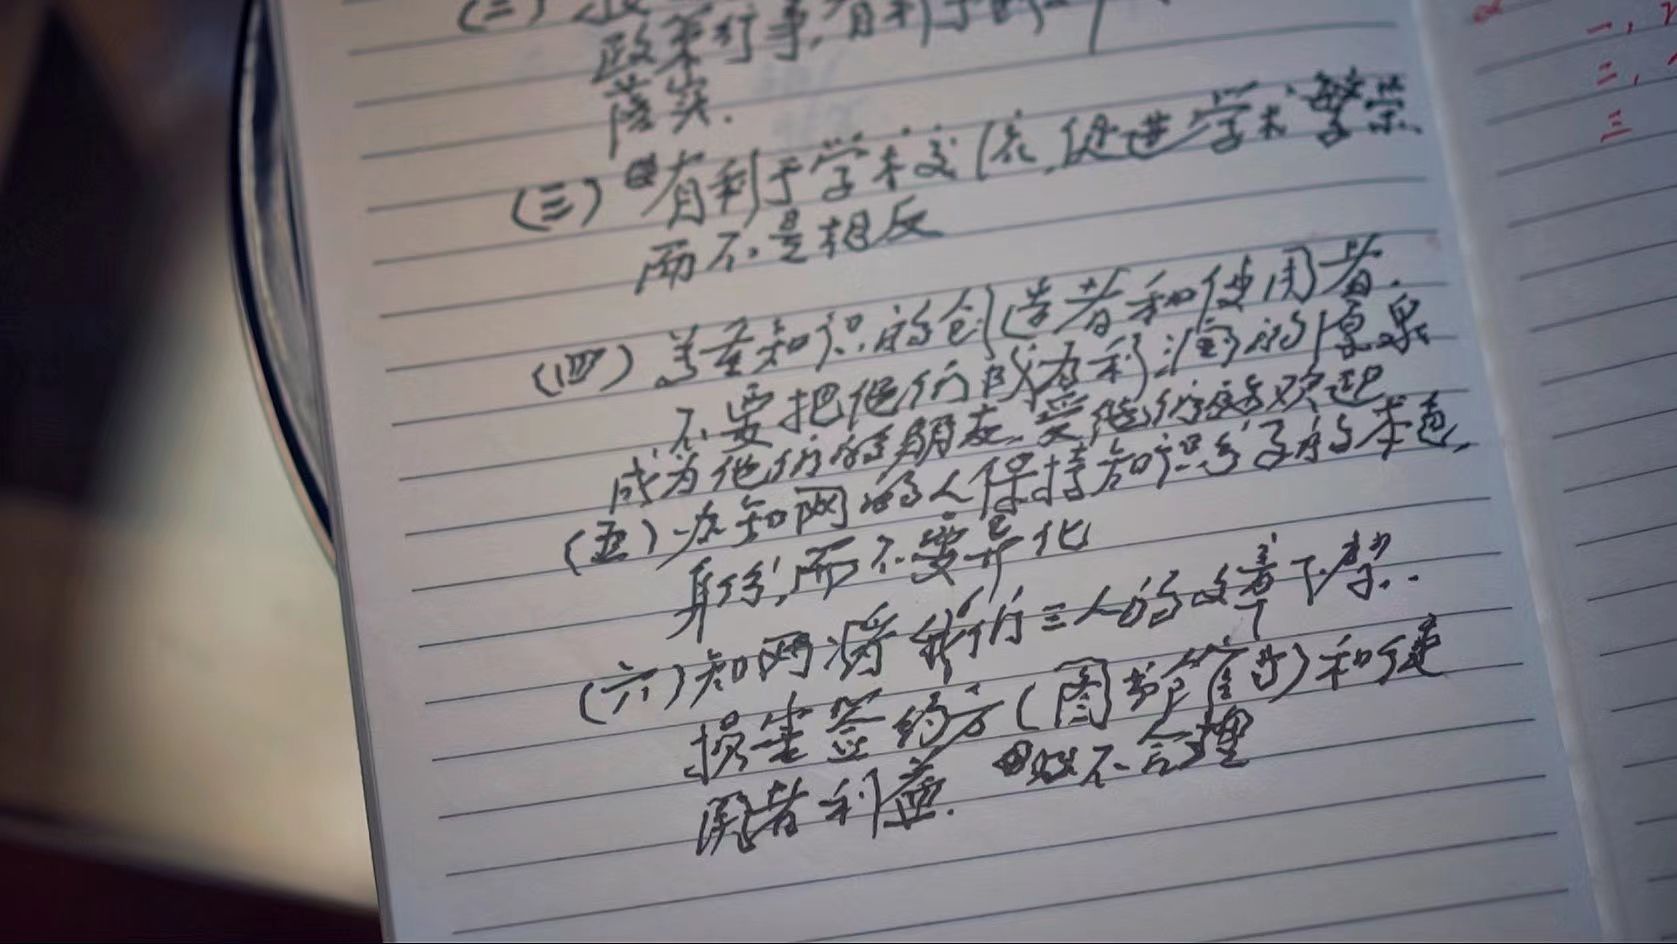 (二)
政策行事,有利于
落实.
(三)有利于学术交流,促进学术繁荣、
而不是相反
(四)善待知识的创造者和使用者.
不要把他们成为利润的源泉
成为他们的朋友,受他们的欢迎
(五)办知网的人保持知识分子的本色,
身份,而不要异化
(六)知网将我们三人的文章下架..
损害签约方(图书馆等)和使
用者利益. 极不合理
一、
二、
三